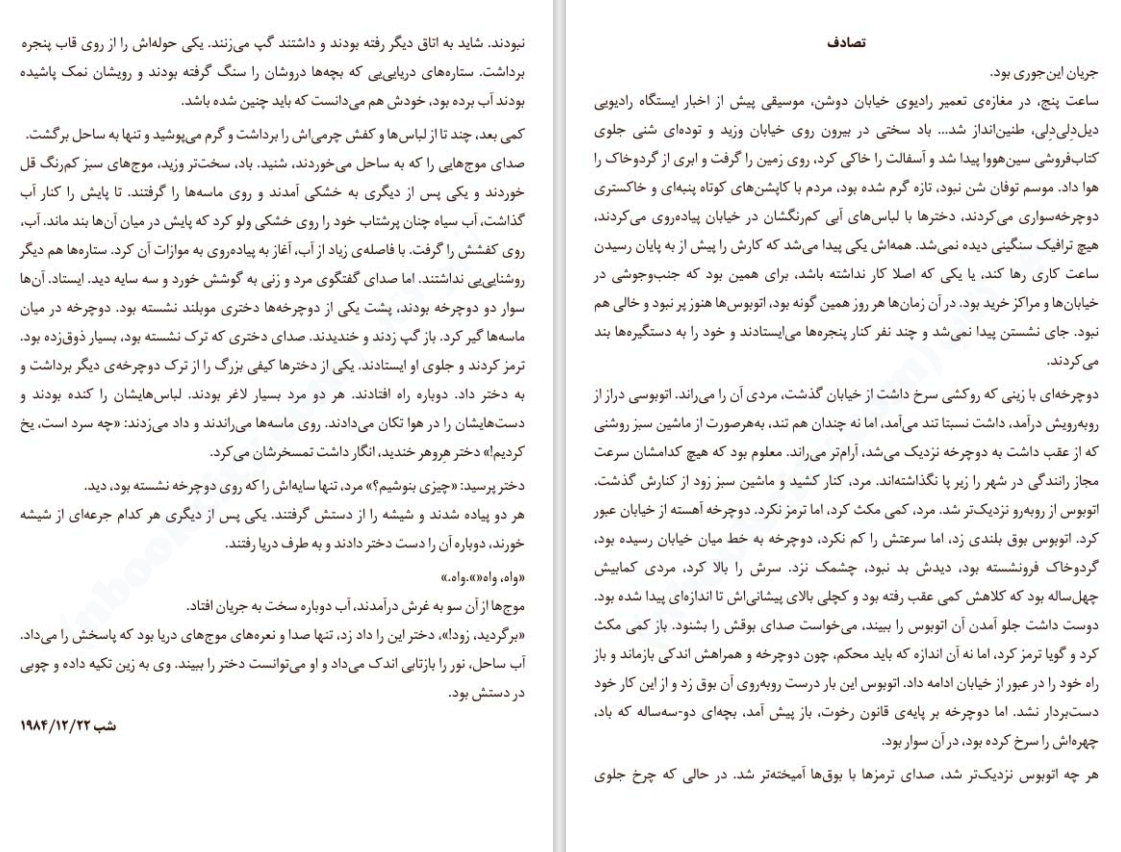 تصادف
جریان این‌جوری بود.
ساعت پنج، در مغازه‌ی تعمیر رادیوی خیابان دوشن، موسیقی پیش از اخبار ایستگاه رادیویی
دیل‌دِلی‌دِلی، طنین‌انداز شد... باد سختی در بیرون روی خیابان وزید و توده‌ای شنی جلوی
کتاب‌فروشی سین‌هووا پیدا شد و آسفالت را خاکی کرد، روی زمین را گرفت و ابری از گردوخاک را
هوا داد. موسم توفان شن نبود، تازه گرم شده بود، مردم با کاپشن‌های کوتاه پنبه‌ای و خاکستری
دوچرخه‌سواری می‌کردند، دخترها با لباس‌های آبی کم‌رنگشان در خیابان پیاده‌روی می‌کردند،
هیچ ترافیک سنگینی دیده نمی‌شد. همه‌اش یکی پیدا می‌شد که کارش را پیش از به پایان رسیدن
ساعت کاری رها کند، یا یکی که اصلا کار نداشته باشد، برای همین بود که جنب‌وجوشی در
خیابان‌ها و مراکز خرید بود. در آن زمان‌ها هر روز همین گونه بود، اتوبوس‌ها هنوز پر نبود و خالی هم
نبود. جای نشستن پیدا نمی‌شد و چند نفر کنار پنجره‌ها می‌ایستادند و خود را به دستگیره‌ها بند
می‌کردند.
دوچرخه‌ای با زینی که روکشی سرخ داشت از خیابان گذشت، مردی آن را می‌راند. اتوبوسی دراز از
روبه‌رویش درآمد، داشت نسبتا تند می‌آمد، اما نه چندان هم تند، به‌هرصورت از ماشین سبز روشنی
که از عقب داشت به دوچرخه نزدیک می‌شد، آرام‌تر می‌راند. معلوم بود که هیچ کدامشان سرعت
مجاز رانندگی در شهر را زیر پا نگذاشته‌اند. مرد، کنار کشید و ماشین سبز زود از کنارش گذشت.
اتوبوس از روبه‌رو نزدیک‌تر شد. مرد، کمی مکث کرد، اما ترمز نکرد. دوچرخه آهسته از خیابان عبور
کرد. اتوبوس بوق بلندی زد، اما سرعتش را کم نکرد، دوچرخه به خط میان خیابان رسیده بود،
گردوخاک فرونشسته بود، دیدش بد نبود، چشمک نزد. سرش را بالا کرد، مردی کمابیش
چهل‌ساله بود که کلاهش کمی عقب رفته بود و کچلی بالای پیشانی‌اش تا اندازه‌ای پیدا شده بود.
دوست داشت جلو آمدن آن اتوبوس را ببیند، می‌خواست صدای بوقش را بشنود. باز کمی مکث
کرد و گویا ترمز کرد، اما نه آن اندازه که باید محکم، چون دوچرخه و همراهش اندکی بازماند و باز
راه خود را در عبور از خیابان ادامه داد. اتوبوس این بار درست روبه‌روی آن بوق زد و از این کار خود
دست‌بردار نشد. اما دوچرخه بر پایه‌ی قانون رخوت، باز پیش آمد، بچه‌ای دو-سه‌ساله که باد،
چهره‌اش را سرخ کرده بود، در آن سوار بود.
هر چه اتوبوس نزدیک‌تر شد، صدای ترمزها با بوق‌ها آمیخته‌تر شد. در حالی که چرخ جلوی
نبودند. شاید به اتاق دیگر رفته بودند و داشتند گپ می‌زنند. یکی حوله‌اش را از روی قاب پنجره
برداشت. ستاره‌های دریایی‌یی که بچه‌ها دروشان را سنگ گرفته بودند و رویشان نمک پاشیده
بودند آب برده بود، خودش هم می‌دانست که باید چنین شده باشد.
کمی بعد، چند تا از لباس‌ها و کفش چرمی‌اش را برداشت و گرم می‌پوشید و تنها به ساحل برگشت.
صدای موج‌هایی را که به ساحل می‌خوردند، شنید. باد، سخت‌تر وزید، موج‌های سبز کم‌رنگ قل
خوردند و یکی پس از دیگری به خشکی آمدند و روی ماسه‌ها را گرفتند. تا پایش را کنار آب
گذاشت، آب سیاه چنان پرشتاب خود را روی خشکی ولو کرد که پایش در میان آن‌ها بند ماند. آب،
روی کفشش را گرفت. با فاصله‌ی زیاد از آب، آغاز به پیاده‌روی به موازات آن کرد. ستاره‌ها هم دیگر
روشنایی‌یی نداشتند. اما صدای گفتگوی مرد و زنی به گوشش خورد و سه سایه دید. ایستاد. آن‌ها
سوار دو دوچرخه بودند، پشت یکی از دوچرخه‌ها دختری موبلند نشسته بود. دوچرخه در میان
ماسه‌ها گیر کرد. باز گپ زدند و خندیدند. صدای دختری که ترک نشسته بود، بسیار ذوق‌زده بود.
ترمز کردند و جلوی او ایستادند. یکی از دخترها کیفی بزرگ را از ترک دوچرخه‌ی دیگر برداشت و
به دختر داد. دوباره راه افتادند. هر دو مرد بسیار لاغر بودند. لباس‌هایشان را کنده بودند و
دست‌هایشان را در هوا تکان می‌دادند. روی ماسه‌ها می‌راندند و داد می‌زدند: «چه سرد است، یخ
کردیم!» دختر هِروهر خندید، انگار داشت تمسخرشان می‌کرد.
دختر پرسید: «چیزی بنوشیم؟» مرد، تنها سایه‌اش را که روی دوچرخه نشسته بود، دید.
هر دو پیاده شدند و شیشه را از دستش گرفتند. یکی پس از دیگری هر کدام جرعه‌ای از شیشه
خورند، دوباره آن را دست دختر دادند و به طرف دریا رفتند.
«واه، واه«».واه.»
موج‌ها از آن سو به غرش درآمدند، آب دوباره سخت به جریان افتاد.
«برگردید، زود!»، دختر این را داد زد، تنها صدا و نعره‌های موج‌های دریا بود که پاسخش را می‌داد.
آب ساحل، نور را بازتابی اندک می‌داد و او می‌توانست دختر را ببیند. وی به زین تکیه داده و چوبی
در دستش بود.
شب ۱۹۸۴/۱۲/۲۲